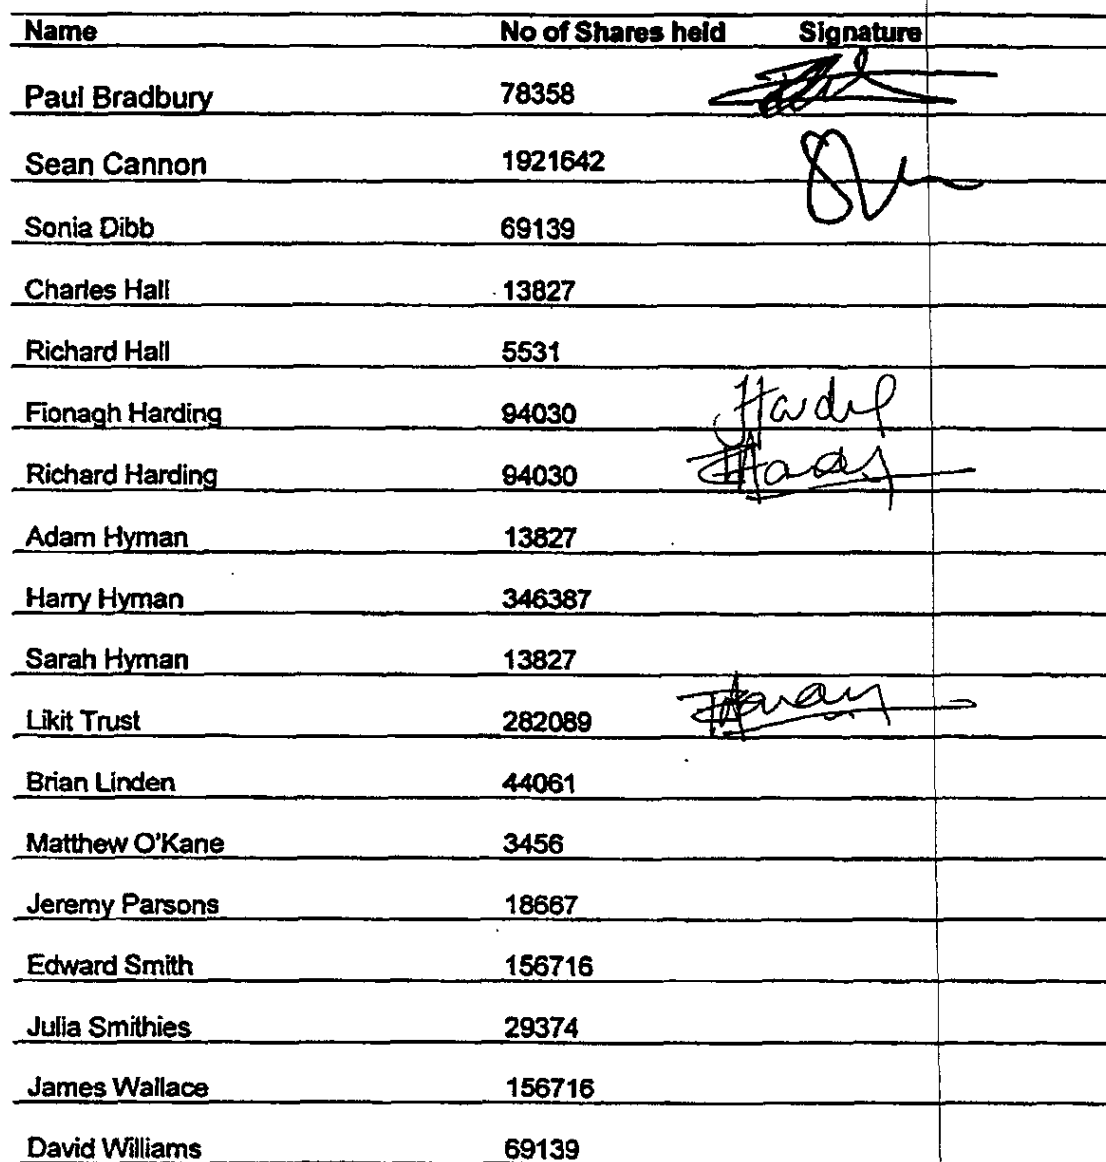 Name No of Shares held Signature
Paul Bradbury 78358
Sean Cannon 1921642
Sonia Dibb 69139
Charles Hall 13827
Richard Hall 5531
Fionagh Harding 94030
Richard Harding 94030
Adam Hyman 13827
Harry Hyman 346387
Sarah Hyman 13827
Likit Trust 282089
Brian Linden 44061
Matthew O'Kane 3456
Jeremy Parsons 18667
Edward Smith 156716
Julia Smithies 29374
James Wallace 156716
David Williams 69139